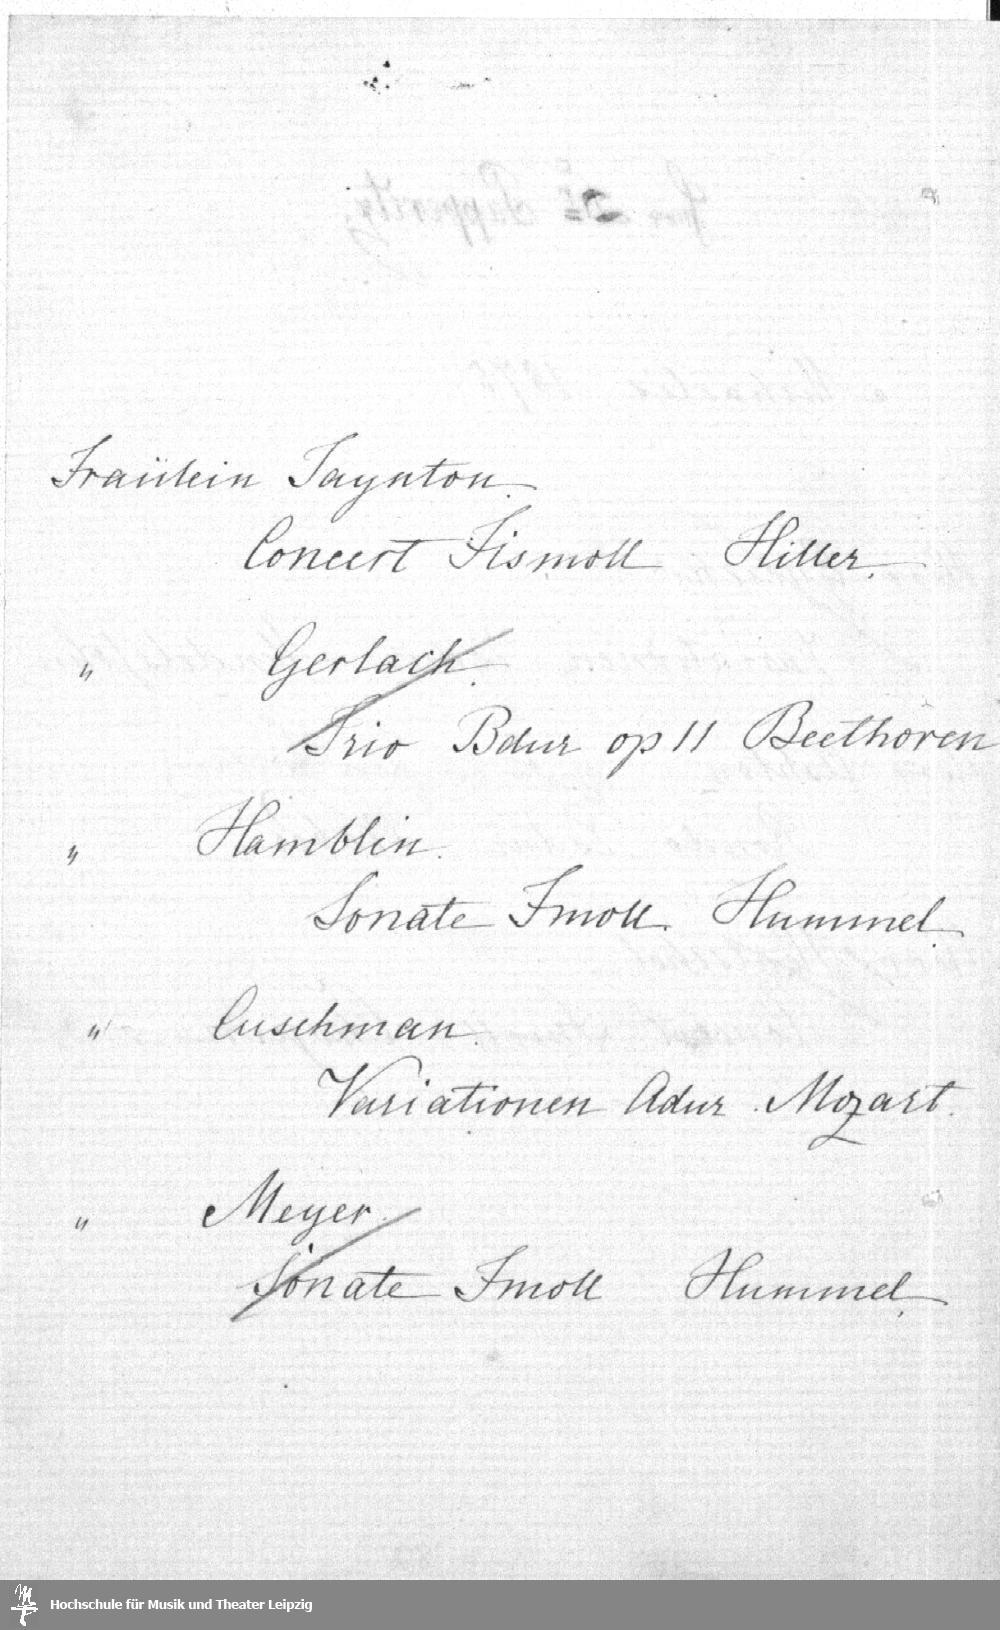 Fraülein Taynton.
Concert Fismoll Hiller.
" Gerlach.
Trio Bdur op 11 Beethoven
" Hamblin.
Sonate Fmoll. Hummel.
" Cuschman.
Variationen Adur. Mozart.
" Meyer.
Sonate Fmoll Hummel.
Hochschule für Musik und Theater Leipzig